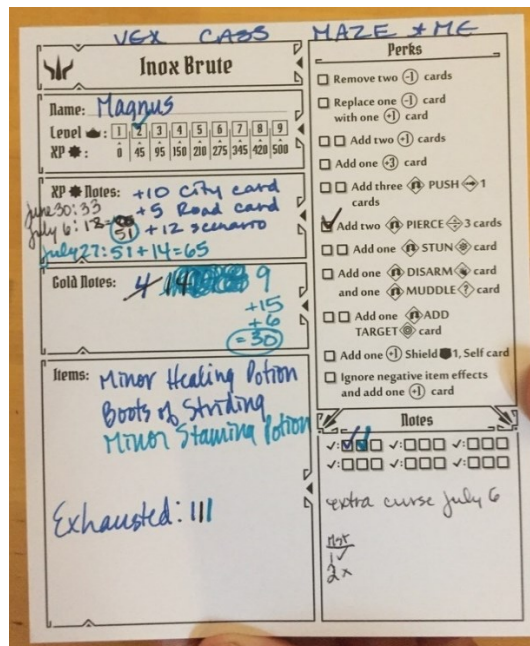 VEX CASS MAZE & ME
Inox Brute
Name: Magnus
Level : 1 2 3 4 5 6 7 8 9
XP : 0 45 95 150 210 275 345 420 500
XP Notes: +10 City card
june 30: 33 +5 Road card
july 6: 18 = 51 +12 scenario
july 27: 51+14=65
Gold Notes: 4 14 9
+15
+6
=30
Items: Minor Healing Potion
Boots of Striding
Minor Stamina Potion
Exhausted: III
Perks
Remove two -1 cards
Replace one -1 card
with one +1 card
Add two +1 cards
Add one +3 card
Add three PUSH 1
cards
Add two PIERCE 3 cards
Add one STUN card
Add one DISARM card
and one MUDDLE card
Add one ADD
TARGET card
Add one +1 Shield 1, Self card
Ignore negative item effects
and add one +1 card
Notes
extra curse july 6
1 ✓
2 x